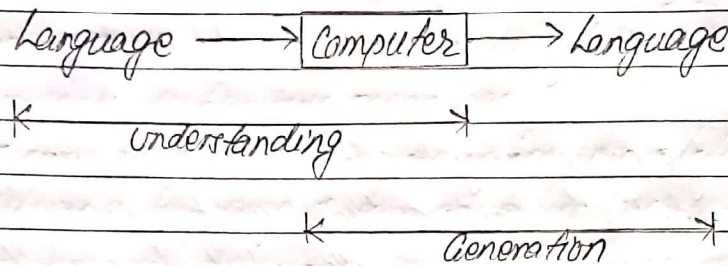 Language Computer Language
understanding
Generation